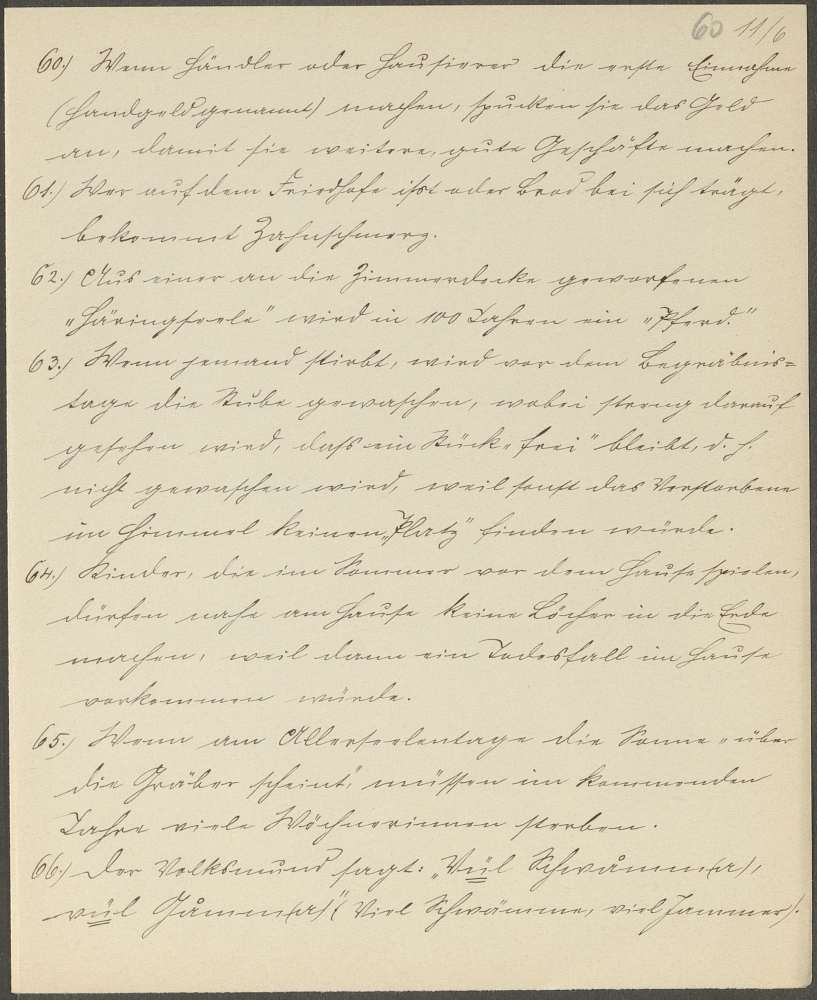 60 11/6
60.) Wenn Händler oder Hausierer die erste Einnahme
(Handgeld genannt) machen, spucken sie das Geld
an, damit sie weitere, gute Geschäfte machen.
61.) Wer auf dem Friedhofe ißt oder Brod bei sich trägt,
bekommt Zahnschmerz.
62.) Aus einer an die Zimmerdecke geworfenen
„Häringseele" wird in 100 Jahren ein „Pferd."
63.) Wenn jemand stirbt, wird vor dem Begräbnis=
tage die Stube gewaschen, wobei streng darauf
gesehen wird, daß ein Stück „frei" bleibt, d. h.
nicht gewaschen wird, weil sonst das Verstorbene
im Himmel keinen „Platz" finden würde.
64.) Kinder, die im Sommer vor dem Hause spielen,
dürfen nahe am Hause keine Löcher in die Erde
machen, weil dann ein Todesfall im Hause
vorkommen würde.
65.) Wenn am Allerseelentage die Sonne „über
die Gräber scheint", müssen im kommenden
Jahre viele Wöchnerinnen sterben.
66.) Der Volksmund sagt: „Vül Schwåmm(a),
vül Jåmm(a)" (Viel Schwämme, viel Jammer).